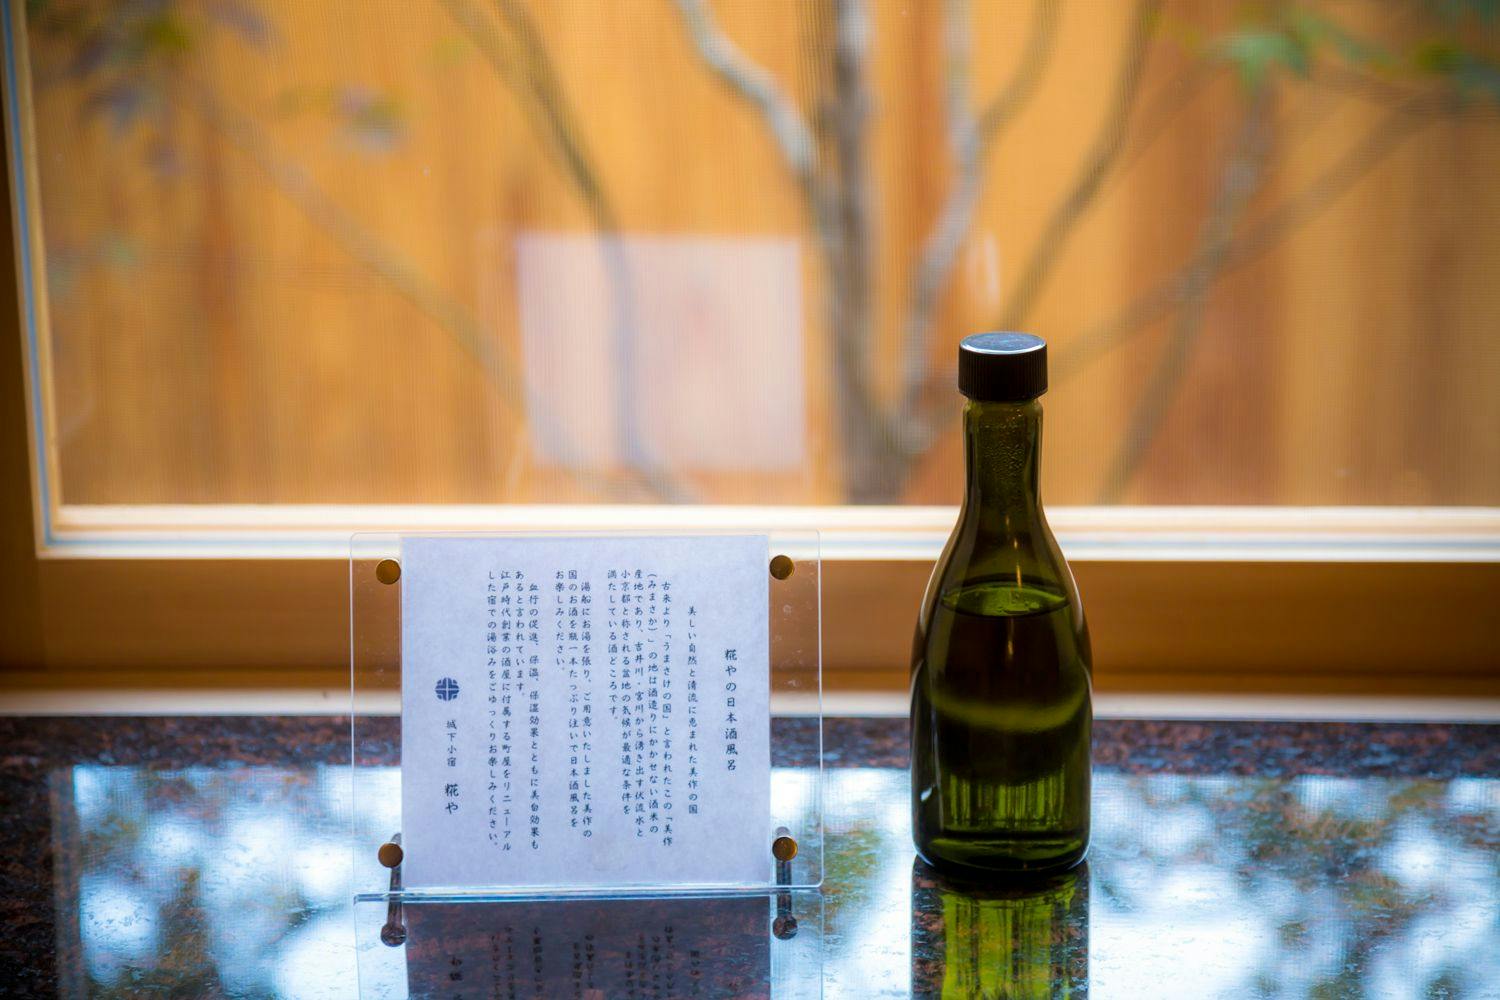 糀やの日本酒風呂
美しい自然と清流に恵まれた美作の国
古来より「うまさけの国」と言われたこの「美作
(みまさか)」の地は酒造りにかかせない酒米の
産地であり、吉井川・宮川から湧き出す伏流水と
小京都と称される盆地の気候が最適な条件を
満たしている酒どころです。
湯船にお湯を張り、ご用意いたしました美作の
国のお酒を瓶一本たっぷり注いで日本酒風呂を
お楽しみください。
血行の促進、保温、保湿効果とともに美白効果も
あると言われています。
江戸時代創業の酒屋に付属する町屋をリニューアル
した宿での湯浴みをごゆっくりお楽しみください。
城下小宿 糀や